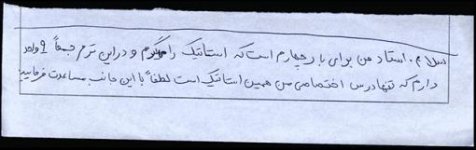 سلام. استاد من برای بار چهارم است که استاتیک را میگیرم و در این ترم جمعاً 9 واحد
دارم که تنها درس اختصاصی من همین استاتیک است لطفاً با این جانب مساعدت فرمایید